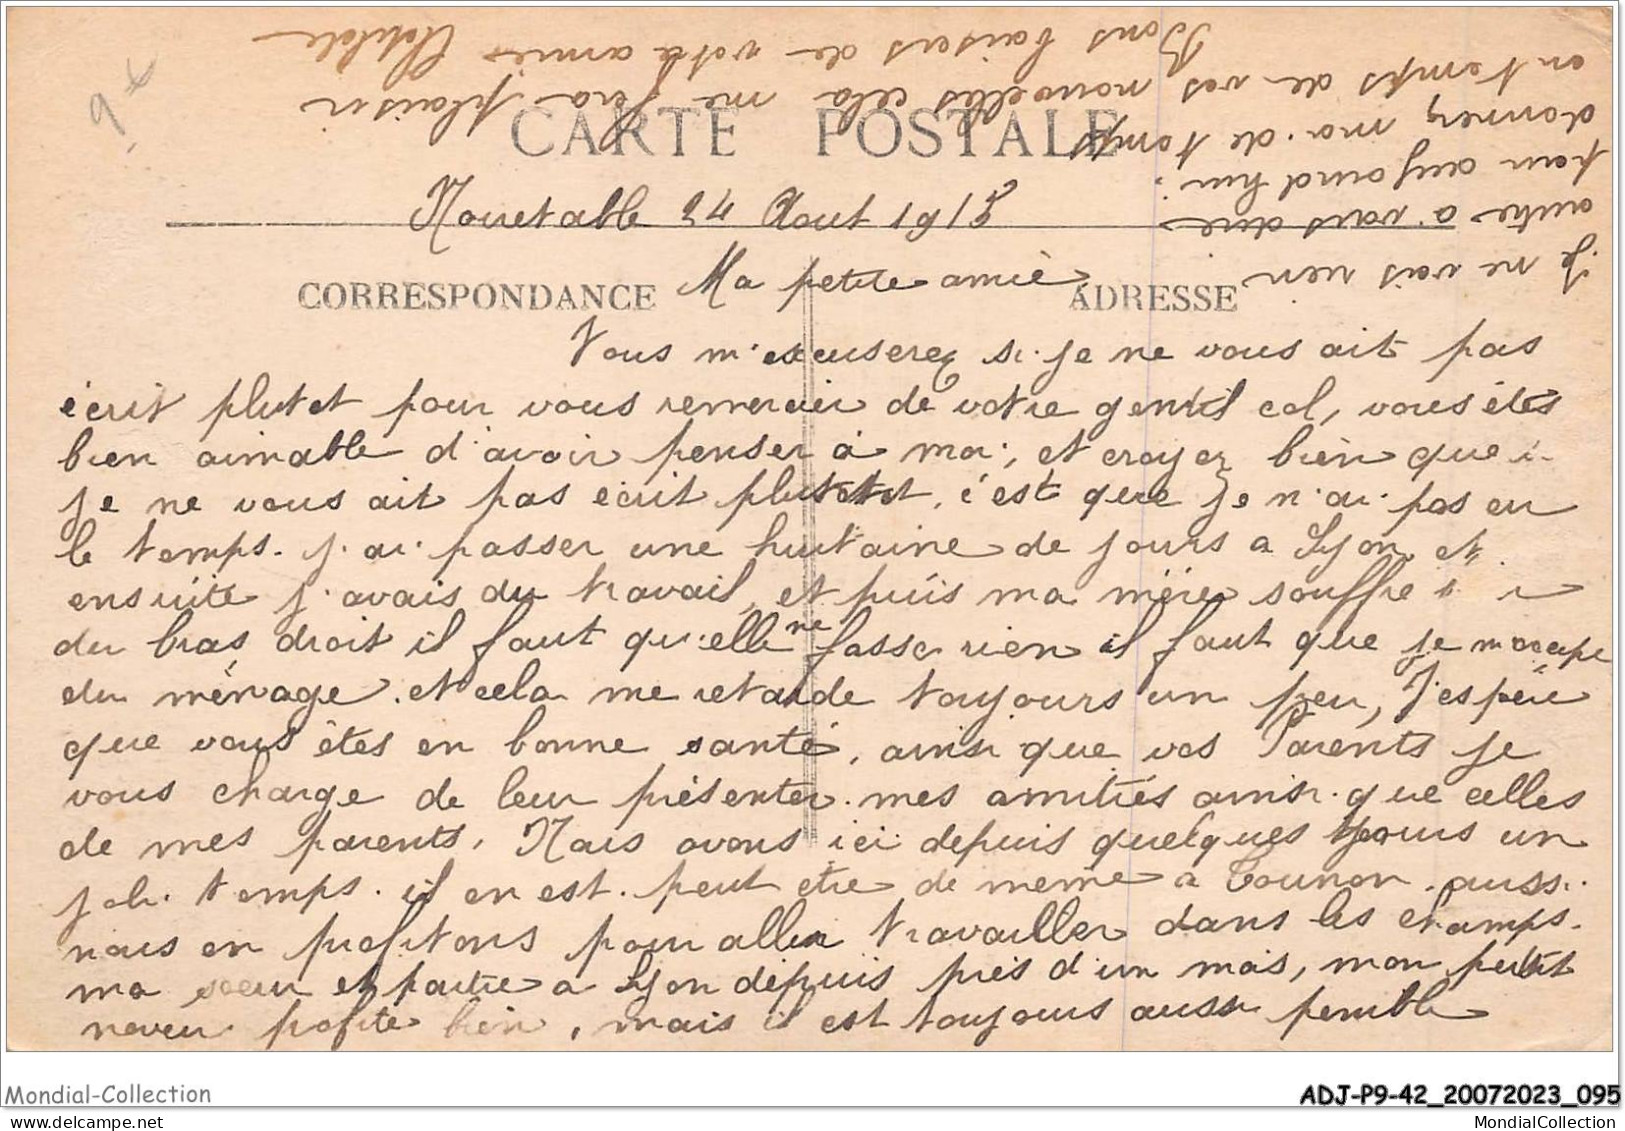 CARTE POSTALE
Nouetable 24 Aout 1915
CORRESPONDANCE
ADRESSE
Ma petite amie
Vous m'excuserez si je ne vous ait pas
écrit plutot pour vous remercier de votre gentil col, vous étes
bien aimable d'avoir penser à moi, et croyez bien que si
je ne vous ait pas écrit plutot, c'est que je n'ai pas eu
le temps. j'ai passer une huitaine de jours a Lyon et
ensuite j'avais du travail, et puis ma mére souffre
du bras droit il faut qu'elle ne fasse rien il faut que je m'ocupe
du ménage. et cela me retarde toujours un peu, J'espére
que vous étes en bonne santé, ainsi que vos Parents je
vous charge de leur présenter mes amitiés ainsi que celles
de mes parents. Nous avons ici depuis quelques jours un
joli temps. il en est peut etre de meme a Tournon. aussi
nous en profitons pour aller travailler dans les champs.
ma soeur et partie a Lyon depuis prés d'un mois, mon petit
neveu profite bien, mais il est toujours aussi penible
je ne vois rien
autre a vous dire
pour aujourd'hui.
donnez moi de temps
en temps de vos nouvelles cela me fera plaisir
Bons baisers de votre amie Clotilde
Mondial-Collection
ADJ-P9-42_20072023_095
MondialCollection.com
MondialCollection